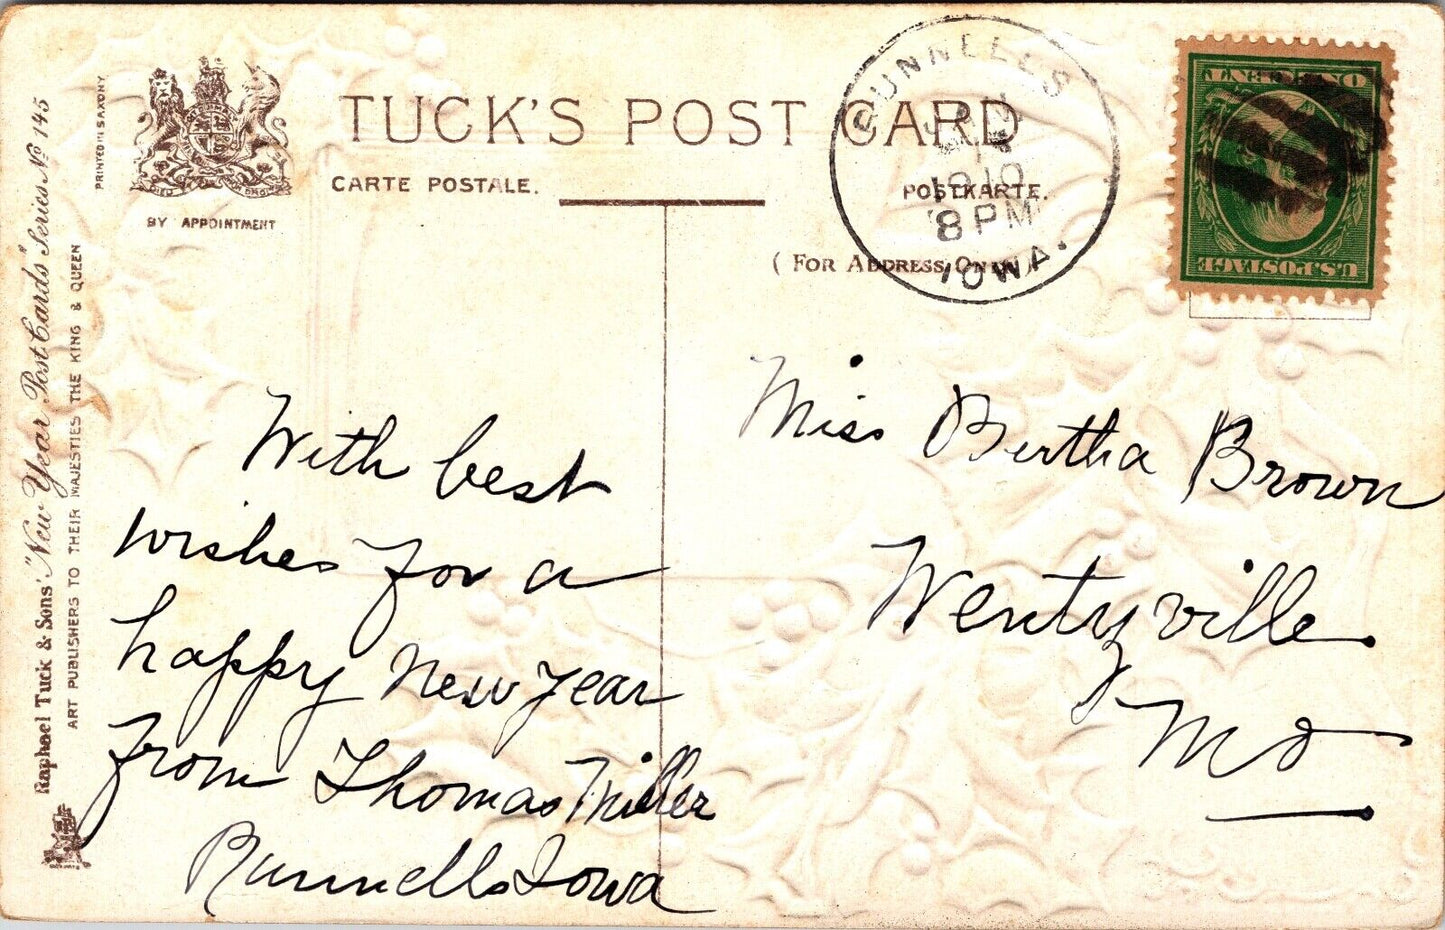 PRINTED IN SAXONY
BY APPOINTMENT
Raphael Tuck & Sons' "New Year Post Cards" Series No 145
ART PUBLISHERS TO THEIR MAJESTIES THE KING & QUEEN
TUCK'S POST CARD
CARTE POSTALE.
POSTKARTE.
(FOR ADDRESS ONLY)
RUNNELLS
JAN
1910
8 PM
IOWA.
ONE CENT
U.S. POSTAGE
With best
wishes for a
happy New year
From Thomas Miller
Runnells Iowa
Miss Bertha Brown
Wentzville
Mo